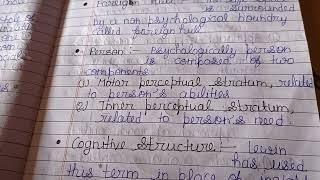 • Foreign hull
is surrounded
by a non psychological boundry
called foreign hull.
• Person :- Psychologically person
is composed of two
components
(1) Motor perceptual stratum, related
to person's abilities
(2) Inner perceptual stratum,
related to person's need.
• Cognitive Structure :- Lewin
has used
this term in place of